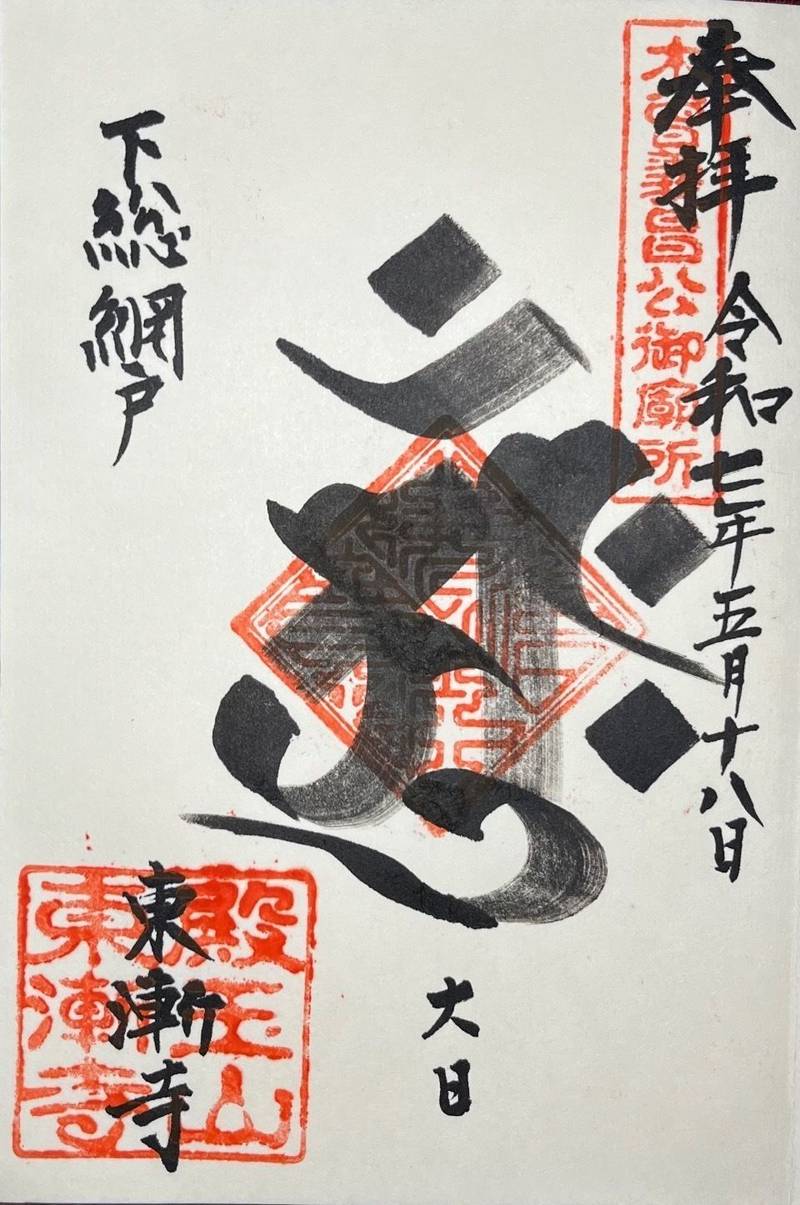 奉拝 令和七年五月十八日
木曽義昌公御廟所
大日
下総網戸
東漸寺
殿玉山
東漸寺